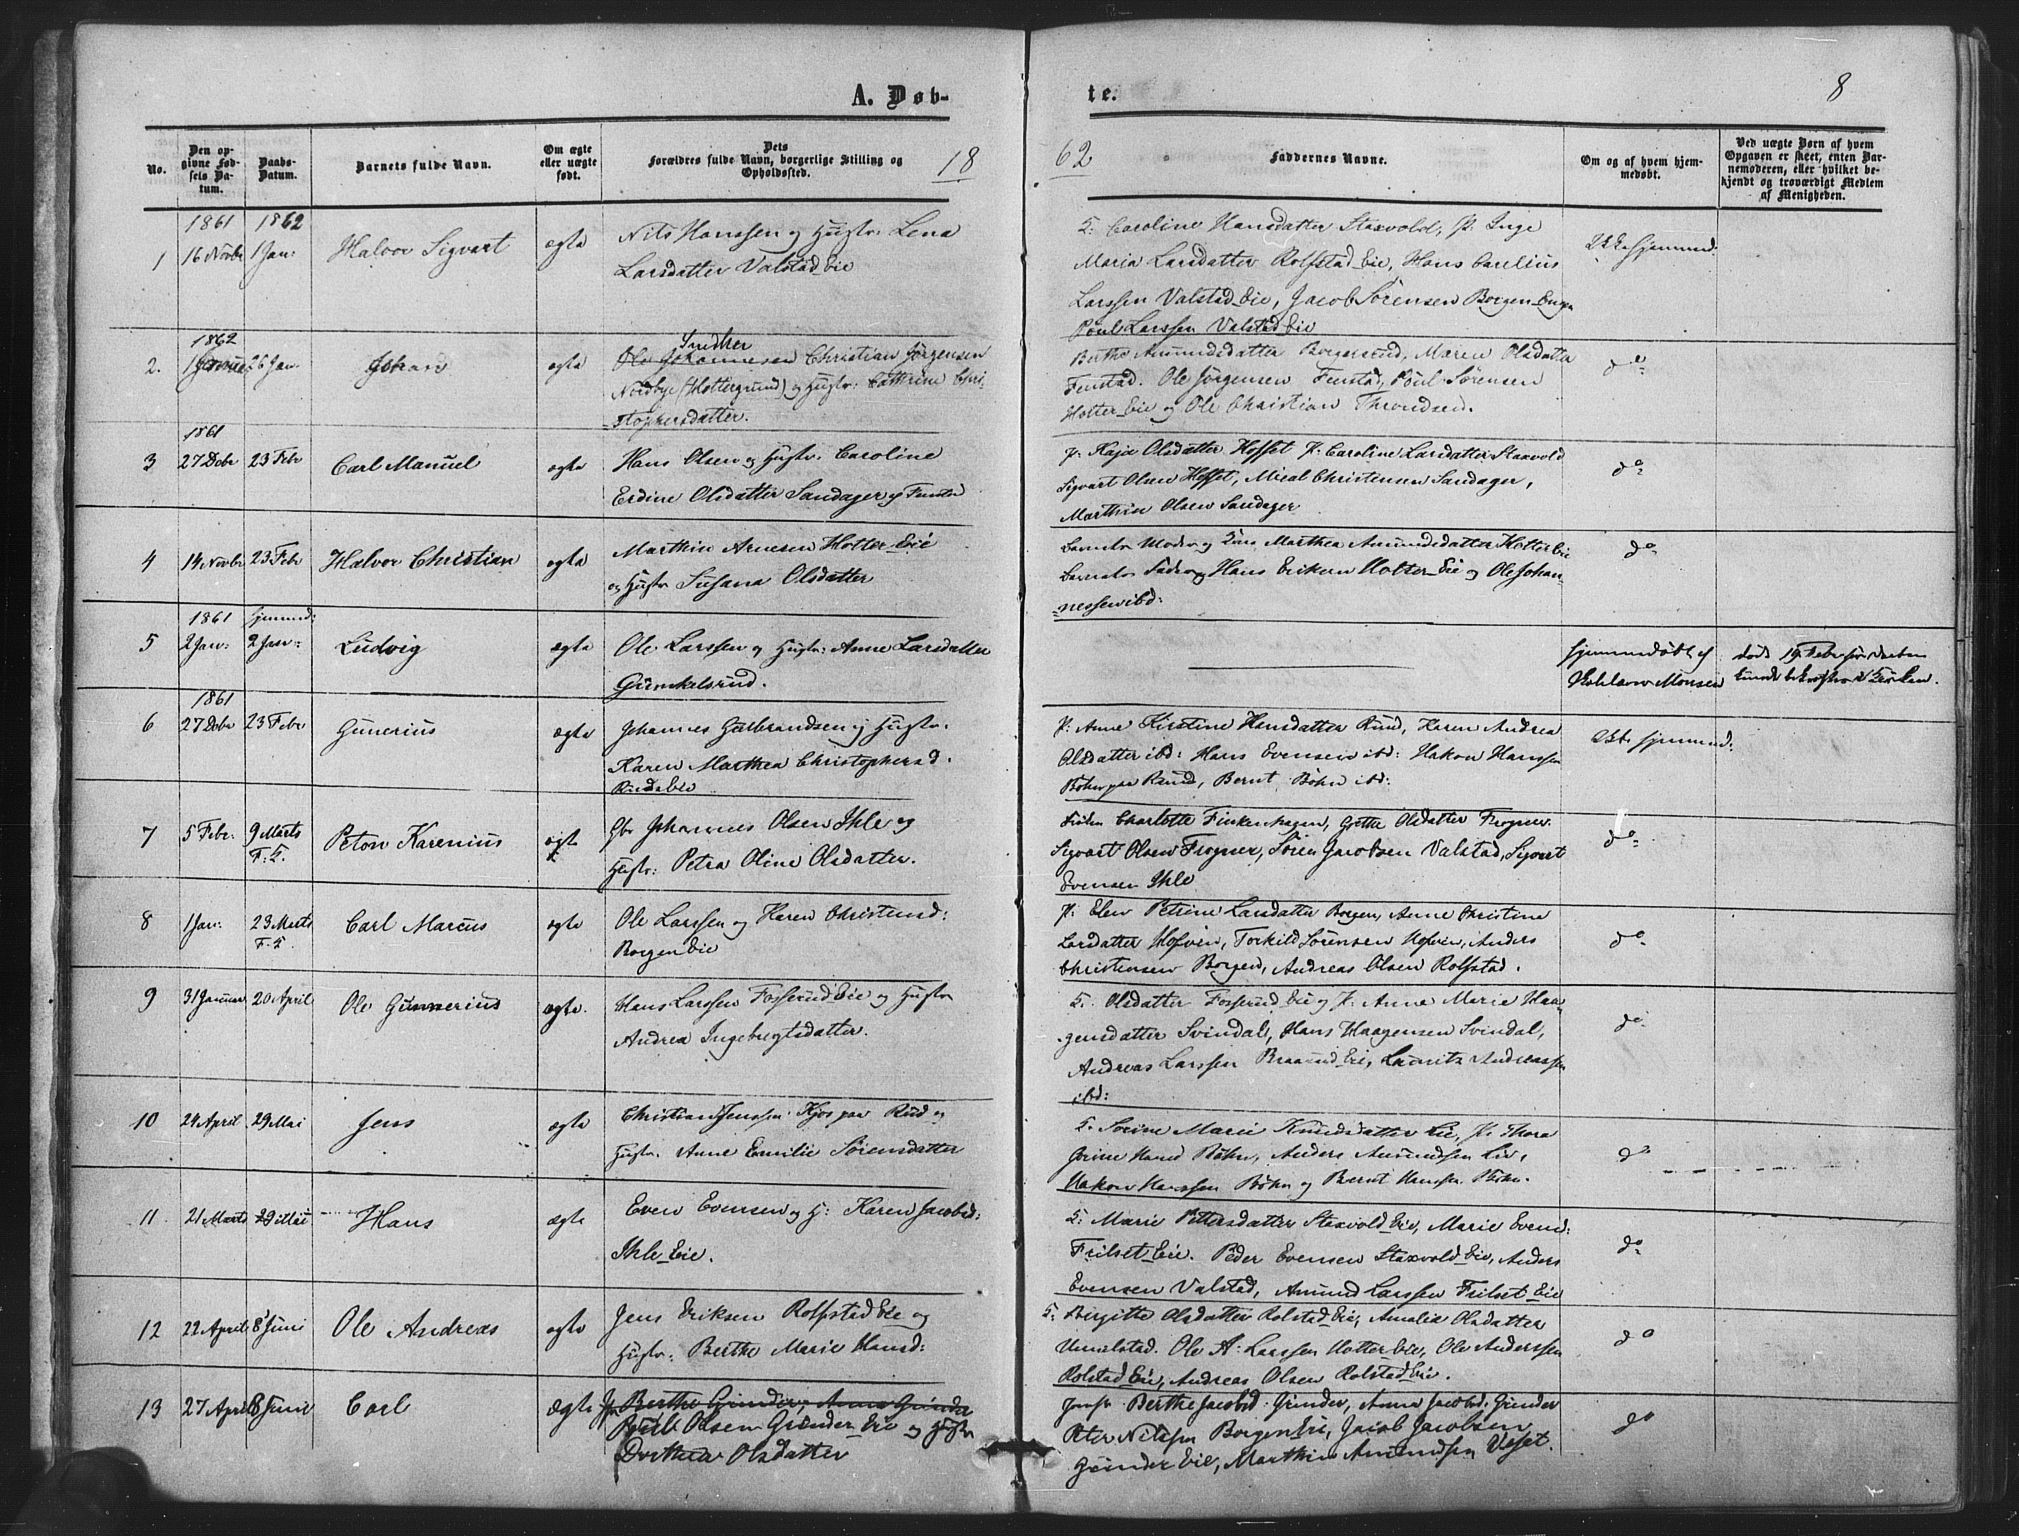 A. Døb-
te.
8
No.
Den opgivne Fødsels Datum.
Daabs-Datum.
Barnets fulde Navn.
Om ægte eller uægte født.
Dets Forældres fulde Navn, borgerlige Stilling og Opholdssted.
18
62
Faddernes Navne.
Om og af hvem hjemmedøbt.
Ved uægte Børn af hvem Opgaven er skeet, enten Barnemoderen, eller hvilket bekjendt og troværdigt Medlem af Menigheden.
1861 1862
1 16 Novbr 1 Jan: Halvor Sigvart ægte
Nils Hanssen og Hustr: Lena
Larsdatter Valstad Eie
S. Caroline Hansdatter Staxvold, P. Inge
Maria Larsdatter Rolfstad Eie, Hans Carelius
Larssen Valstad Eie, Jacob Sørensen Borgen Engen
Poul Larssen Valstad Eie
Ikke hjemmed:
1862
2. 26 Jan Johan ægte
Indher
Ole Johannesen Christian Jørgensen
Nordbye (Hottergrund) og Hustr: Cathrine Chri-
stophersdatter.
Berthe Amundsdatter Borgersrud, Maren Olsdatter
Fenstad. Ole Jørgensen Fenstad, Poul Sørensen
Hotter Eie og Ole Christian Throndsen.
do
1861
3 27 Debr 23 Febr Carl Manuel ægte
Hans Olsen og Hustr. Caroline
Erdine Olsdatter Sandager og Fenstad
P. Kaja Olsdatter Hofset P. Caroline Larsdatter Staxvold
Sigvart Olsen Hofset, Micael Christensen Sandager,
Marthin Olsen Sandager
do
4 14 Novbr 23 Febr Halvor Christian ægte
Marthin Arnesen Hotter Eie
og Hustr Susana Olsdatter
Barnets Moder og Marthea Amundsdatter Hotter Eie
Barnets Fader og Hans Eriksen Hotter Eie og Ole Johan-
nessen ibd:
do
1861 hjemmed:
5 2 Jan: 2 Jan: Ludvig ægte
Ole Larssen og Hustr: Anne Larsdatter
Gunkelsrud.
hjemmedøbt af
Monsen
død 19 Febr før Daaben
kunde bekræftes i Kirken.
1861
6 27 Debr 23 Febr Gunerius ægte
Johannes Gulbrandsen og Hustr.
Karen Marthea Christophersd.
Ruds Eie
P: Anne Kirstine Hansdatter Rud, Karen Andrea
Olsdatter ibd: Hans Evensen ibd: Hakon Hanssen
Bøhn paa Rud, Bernt Bøhn ibd:
Ikke hjemmed:
7 5 Febr. 9 Marts Peton Karenius ægte
F. K.
Gbr Johannes Olsen Ihle og
Hustr: Petra Oline Olsdatter.
Frøken Charlotte Finkenhagen, Grethe Olsdatter Frogner.
Sigvart Olsen Frogner, Søren Jacobsen Valstad, Sigvart
Evensen Ihle
do
8 1 Jan: 23 Marts Carl Marcus ægte
F. K.
Ole Larssen og Karen Christensd:
Borgen Eie
P: Elen Petrine Larsdatter Borgen, Anne Christine
Larsdatter Hofven, Torkild Sørensen Hofven, Anders
Christensen Borgen, Andreas Olsen Rolfstad.
do
9 31 Januar 20 April Ole Gunnerius ægte.
Hans Larssen Fosserud Eie og Hustr
Andrea Ingebregtsdatter.
S. Olsdatter Fosserud Eie og P. Anne Marie Haa-
gensdatter Svindal, Hans Haagensen Svindal,
Andreas Larssen Braarud Eie, Lauritz Andreassen
ibd:
do
10 24 April 29 Mai Jens ægte
Christian Jenssen Kjos paa Rud og
Hustr. Anne Emilie Sørensdatter
S. Sorine Marie Knudsdatter Lie, P. Thora
Jorine Hansd Bøhn, Anders Amundsen Lie,
Hakon Hanssen Bøhn og Bernt Hanssen Bøhn.
do
11 21 Marts 29 Mai Hans ægte
Even Evensen og H: Karen Jacobsd:
Ihle Eie.
S: Marie Pettersdatter Staxvold Eie, Marie Evensd:
Frilset Eie. Peder Evensen Staxvold Eie, Anders
Evensen Valstad, Amund Larssen Frilset Eie
do
12 22 April 8 Juni Ole Andreas ægte
Jens Eriksen Rolfstad Eie og
Hustr: Berthe Marie Hansd:
S: Birgitte Olsdatter Rolstad Eie, Amalie Olsdatter
Unnelstad. Ole A: Larssen Hotter Eie, Ole Anderssen
Rolstad Eie, Andreas Olsen Rolstad Eie.
do
13 27 April 8 Juni Carl ægte
Jfr Berthe Grinder, Anna Grinder
Poul Olsen Grinder Eie og Hustr
Dorthea Olsdatter
Jomfr Berthe Jacobsd. Grinder, Anna Jacobsd. Grinder
Peter Nilssen Borgen Eie, Jacob Jacobsen
Grinder Eie, Marthin Amundsen Veset.
do